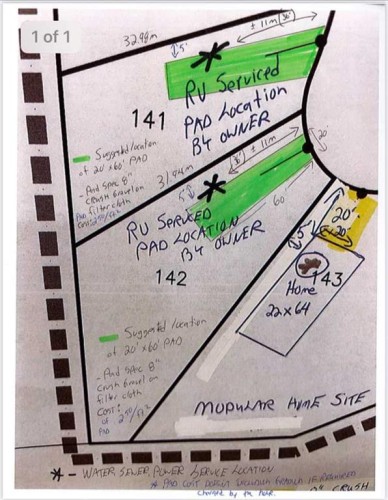 1 of 1
32.98m
5'
± 11m (36')
RV Serviced
PAD Location
BY OWNER
141
Suggested location
of 20' x 60' PAD
- Pad spec 8"
crush gravel on
filter cloth
Pad
Cost: 2.50/Ft²
20'
(36') ± 11m
31.94m
5'
60'
RV SERVICED
PAD LOCATION
BY OWNER
142
20'
20'
5'
143
Home
22x64
Suggested location
of 20' x 60' PAD
- Pad spec 8"
crush gravel on
filter cloth
Cost:
2.50/Ft²
PAD
MODULAR HOME SITE
* - WATER, SEWER, POWER SERVICE LOCATION
* PAD COST
IF REQUIRED
by the hour.
CRUSH